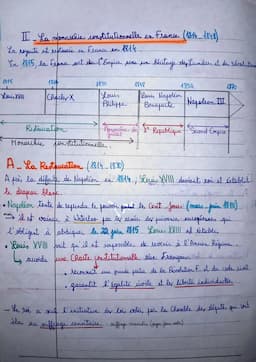 II - La monarchie constitutionnelle en France (1814-1848)
La royauté est restaurée en France en 1814
En 1815, la France sort de l'Empire, avec un héritage des Lumières et de la révolution
1815 1824 1830 1848 1852 1870
Louis XVIII Charles X Louis Philippe Louis Napoléon Bonaparte Napoléon III
Restauration Monarchie de juillet IIe République Second Empire
Monarchie constitutionnelle
A - La Restauration (1814-1830)
Après la défaite de Napoléon en 1814, Louis XVIII devient roi et rétablit
le drapeau blanc.
• Napoléon tente de reprendre le pouvoir pendant les Cent-Jours (mars-juin 1815)
il est vaincu à Waterloo par les puissances européennes qui
l'obligent à abdiquer le 22 juin 1815. Louis XVIII est rétabli.
• Louis XVIII sait qu'il est impossible de revenir à l'Ancien Régime.
↳ accorde une Charte constitutionnelle aux Français
• reconnaît une grande partie de la Révolution F. et du code civil
• garantit l'égalité civile et les libertés individuelles
- Le roi a seul l'initiative des lois votées par la Chambre des députés qui est
élue au suffrage censitaire.